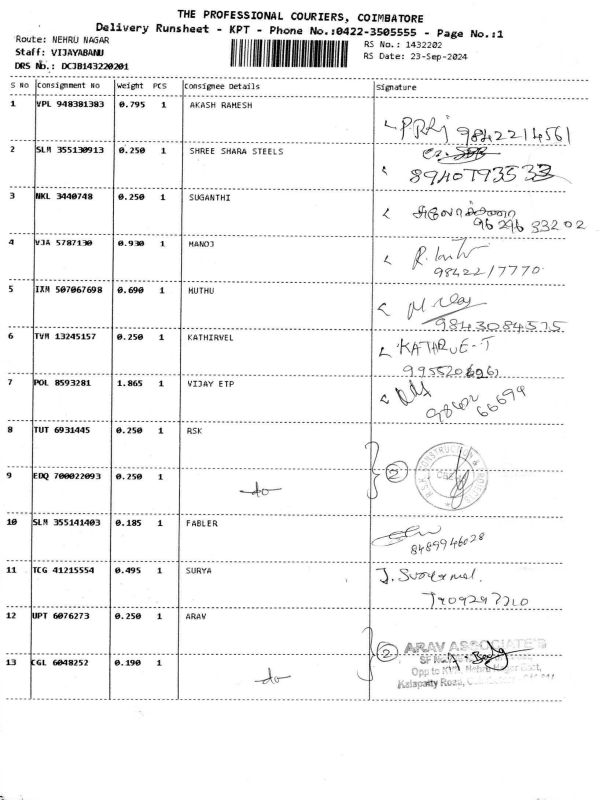 THE PROFESSIONAL COURIERS, COIMBATORE
Delivery Runsheet - KPT - Phone No.:0422-3505555 - Page No.:1
Route: NEHRU NAGAR
RS No.: 1432202
Staff: VIJAYABANU
RS Date: 23-Sep-2024
DRS No.: DCJB143220201
S No Consignment No Weight PCS Consignee Details Signature
1 VPL 948381383 0.795 1 AKASH RAMESH
9842214561
2 SLM 355130913 0.250 1 SHREE SHARA STEELS
8940793533
3 NKL 3440748 0.250 1 SUGANTHI
96296 83202
4 VJA 5787130 0.930 1 MANOJ
9842217770
5 IXM 507067698 0.690 1 MUTHU
9843084575
6 TVM 13245157 0.250 1 KATHIRVEL
KATHRVE-T
7 POL 8593281 1.865 1 VIJAY ETP
98402 66694
8 TUT 6931445 0.250 1 RSK
2
9 EDQ 700022093 0.250 1 -do-
10 SLM 355141403 0.185 1 FABLER
8489946028
11 TCG 41215554 0.495 1 SURYA
12 UPT 6076273 0.250 1 ARAV
2
ARAV ASSOCIATE'S
13 CGL 6048252 0.190 1 -do-
Kalapatty Road,